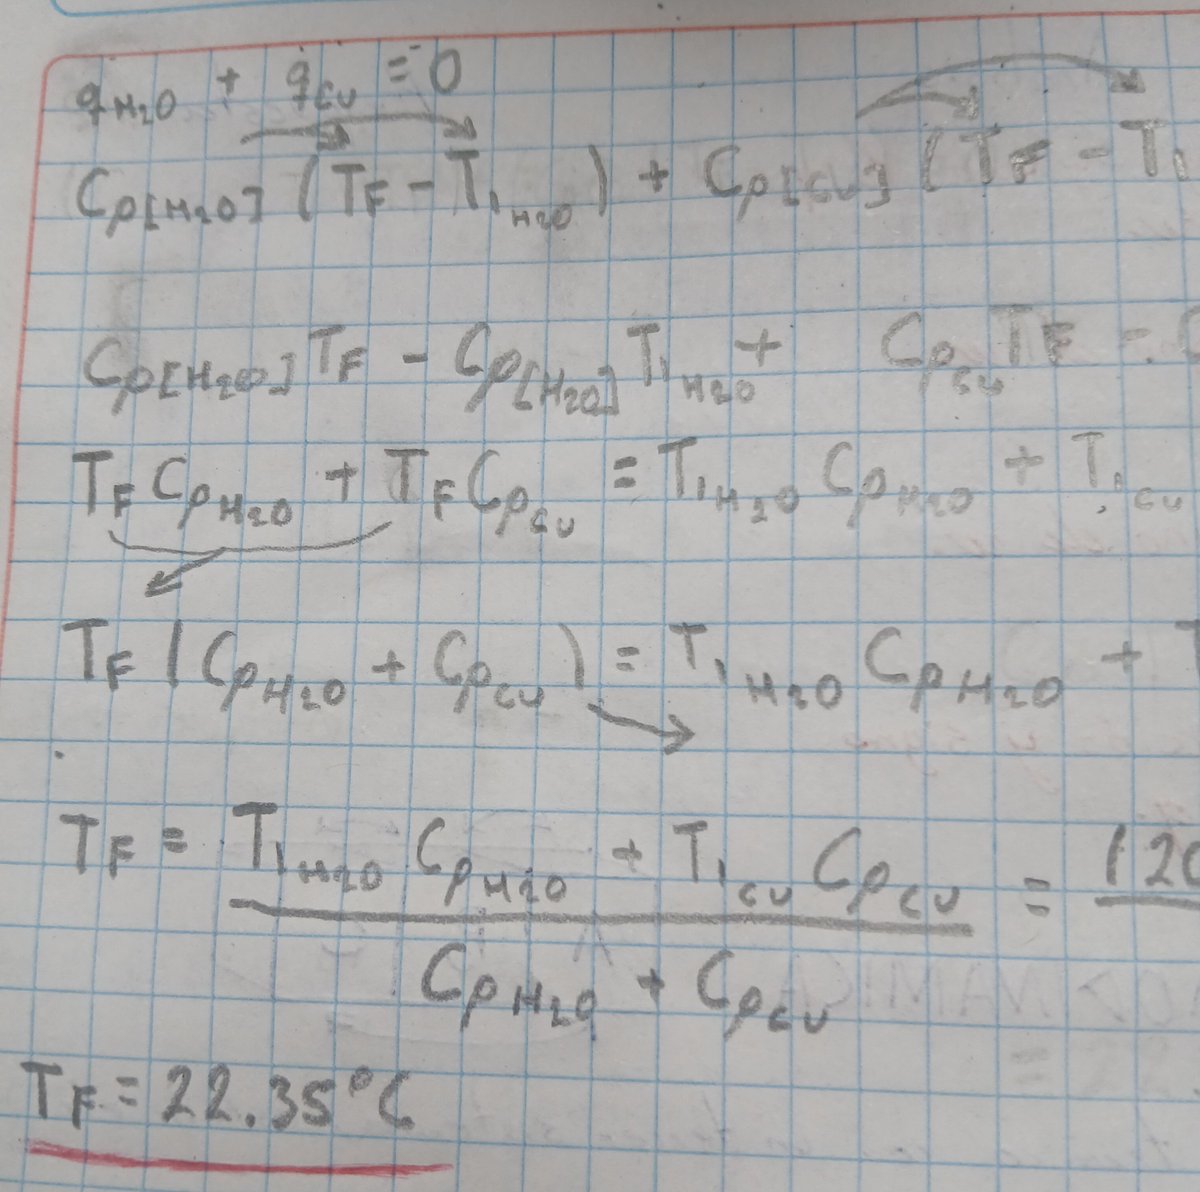 qH₂O + qCu = 0
Cp[H₂O] (TF - T₁H₂O) + Cp[Cu] (TF - T₁
Cp[H₂O] TF - Cp[H₂O] T₁H₂O + CpCu TF -
TF CpH₂O + TF CpCu = T₁H₂O CpH₂O + T₁Cu
TF (CpH₂O + CpCu) = T₁H₂O CpH₂O + T
TF = T₁H₂O CpH₂O + T₁Cu CpCu = (20
CpH₂O + CpCu
TF = 22.35°C